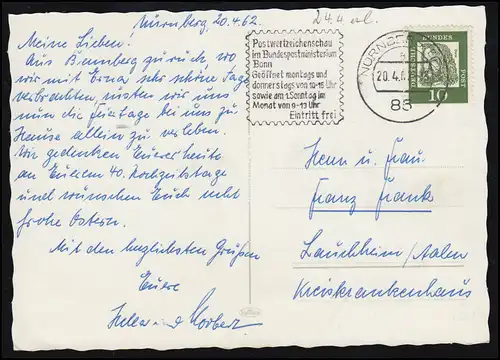 Nürnberg, 20.4.62.
Meine Lieben!
Aus Bamberg zurück, wo
wir mit Erna sehr schöne Tage
verbrachten, rüsten wir uns
nun die Feiertage bei uns zu
Hause allein zu verleben.
Wir gedenken Euerer heute
an Euerem 40. Hochzeitstage
und wünschen Euch recht
frohe Ostern.
Mit den herzlichsten Grüßen
Euere
und Norbert
Postwertzeichenschau
im Bundespostministerium
Bonn
Geöffnet montags und
donnerstags von 10-16 Uhr
sowie am 1.Sonntag im
Monat von 9-13 Uhr
Eintritt frei
NÜRNBERG
20.4.6
85
DEUTSCHE
BUNDES
POST
10
Herrn u. Frau
Franz Frank
Lauchheim/Aalen
Kreiskrankenhaus